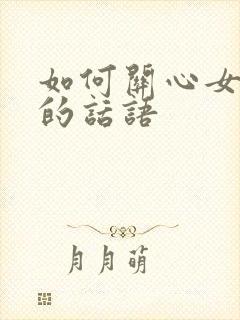 如何關心女
的話語
月月萌